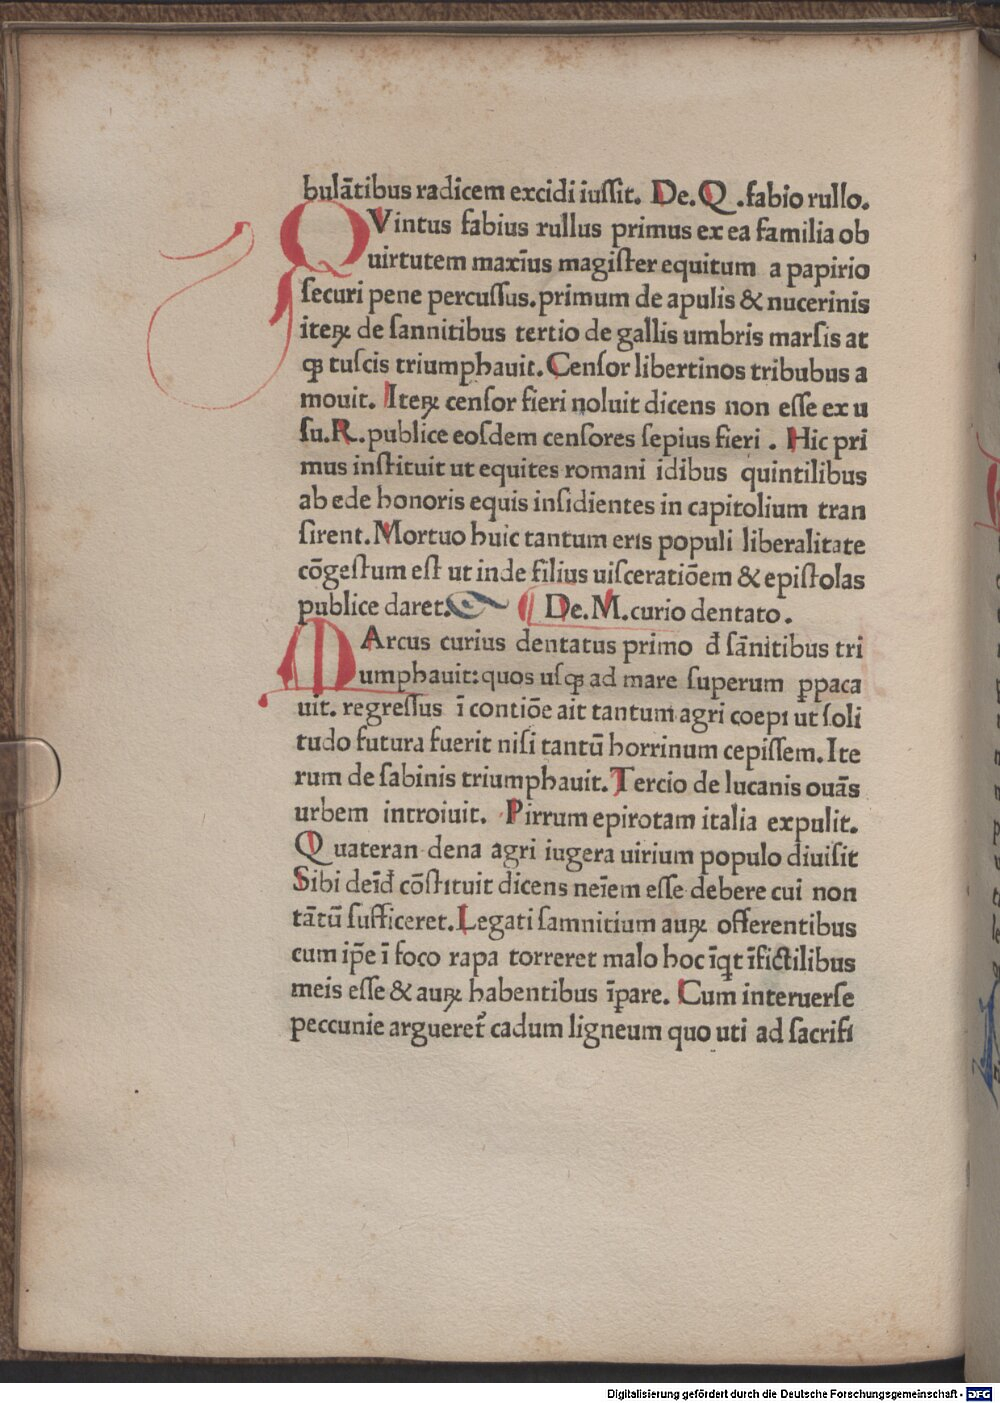 bulātibus radicem excidi iuſſit. De. Q .fabio rullo.
QVintus fabius rullus primus ex ea familia ob
uirtutem maxīus magiſter equitum a papirio
ſecuri pene percuſſus. primum de apulis & nucerinis
iteꝝ de ſannitibus tertio de gallis umbris marſis at
qꝫ tuſcis triumphauit. Cenſor libertinos tribubus a
mouit. Iteꝝ cenſor fieri noluit dicens non eſſe ex u
ſu.R.publice eoſdem cenſores ſepius fieri . Hic pri
mus inſtituit ut equites romani idibus quintilibus
ab ede honoris equis inſidientes in capitolium tran
ſirent. Mortuo huic tantum eris populi liberalitate
cōgeſtum eſt ut inde filius uiſceratiōem & epiſtolas
publice daret. De.M.curio dentato.
MArcus curius dentatus primo đ ſānitibus tri
umphauit: quos uſqꝫ ad mare ſuperum ꝑpaca
uit. regreſſus ī contiōe ait tantum agri coepi ut ſoli
tudo futura fuerit niſi tantū horrinum cepiſſem. Ite
rum de ſabinis triumphauit. Tercio de lucanis ouās
urbem introiuit. Pirrum epirotam italia expulit.
Quateran dena agri iugera uirium populo diuiſit
Sibi deīđ cōſtituit dicens neīem eſſe debere cui non
tātū ſufficeret. Legati ſamnitium auꝝ offerentibus
cum ip̄e ī foco rapa torreret malo hoc īqt īfictilibus
meis eſſe & auꝝ habentibus īpare. Cum interuerſe
peccunie argueret᷑ cadum ligneum quo uti ad ſacrifi
Digitalisierung gefördert durch die Deutsche Forschungsgemeinschaft - DFG